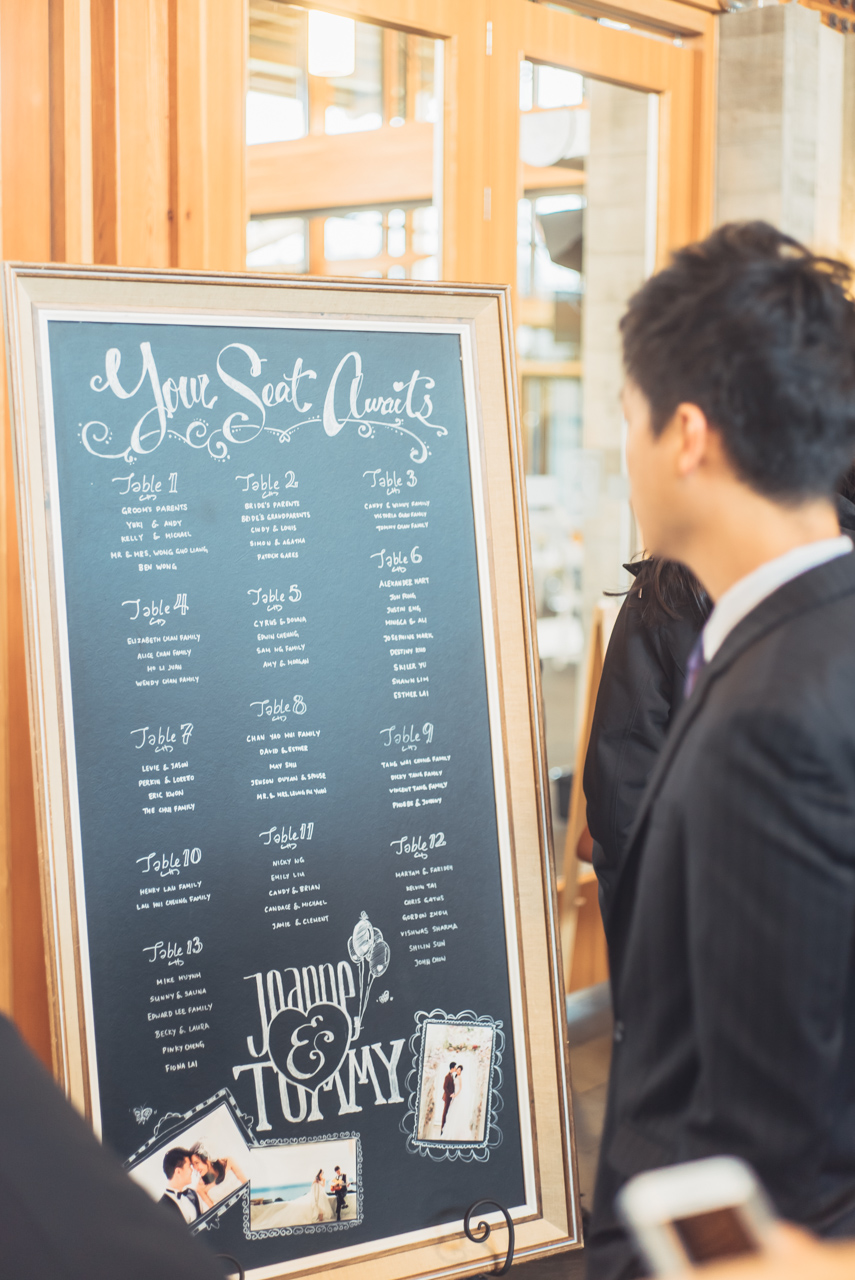 Your Seat Awaits
Table 1
GROOM'S PARENTS
YUKI & ANDY
KELLY & MICHAEL
MR & MRS. WONG GUO LIANG
BEN WONG
Table 2
BRIDE'S PARENTS
BRIDE'S GRANDPARENTS
CINDY & LOUIS
SIMON & AGATHA
Table 3
CANDY & WINNY FAMILY
VICTORIA CHAN FAMILY
TOMMY CHAN FAMILY
Table 4
ELIZABETH CHAN FAMILY
ALICE CHAN FAMILY
HO LI JUAN
WENDY CHAN FAMILY
Table 5
CYRUS & DONNA
EDWIN CHEUNG
SAM NG FAMILY
AMY & MORGAN
Table 6
ALEXANDER HART
JUN FONG
JUSTIN ENG
MONICA & ALI
JOSEPHINE
DESTINY
SKILER YU
SHAWN LIM
ESTHER LAI
Table 7
LEVIE & JASON
PERKIN & LORETO
ERIC KWON
THE CHOI FAMILY
Table 8
CHAN YAO HOI FAMILY
DAVID & ESTHER
MAY SHU
JENSON DUYAN & SPOUSE
MR. & MRS. LEUNG FU YUN
Table 9
TANG WAI CHUNG FAMILY
DICKY TANG FAMILY
VINCENT TANG FAMILY
PHOEBE & JOHNNY
Table 10
HENRY LAU FAMILY
LAU HOI CHEUNG FAMILY
Table 11
NICKY NG
EMILY LIU
CANDY & BRIAN
CANDACE & MICHAEL
JAMIE & CLEMENT
Table 12
MARYAM & FARIDEH
KELVIN TAI
CHRIS GATUS
GORDON ZHOU
VISHWAS SHARMA
SHILIN SUN
JOHN CHIN
Table 13
MIKE HUYNH
SUNNY & SALINA
EDWARD LEE FAMILY
BECKY & LAURA
PINKY CHENG
FIONA LAI
Joanne
&
TOMMY